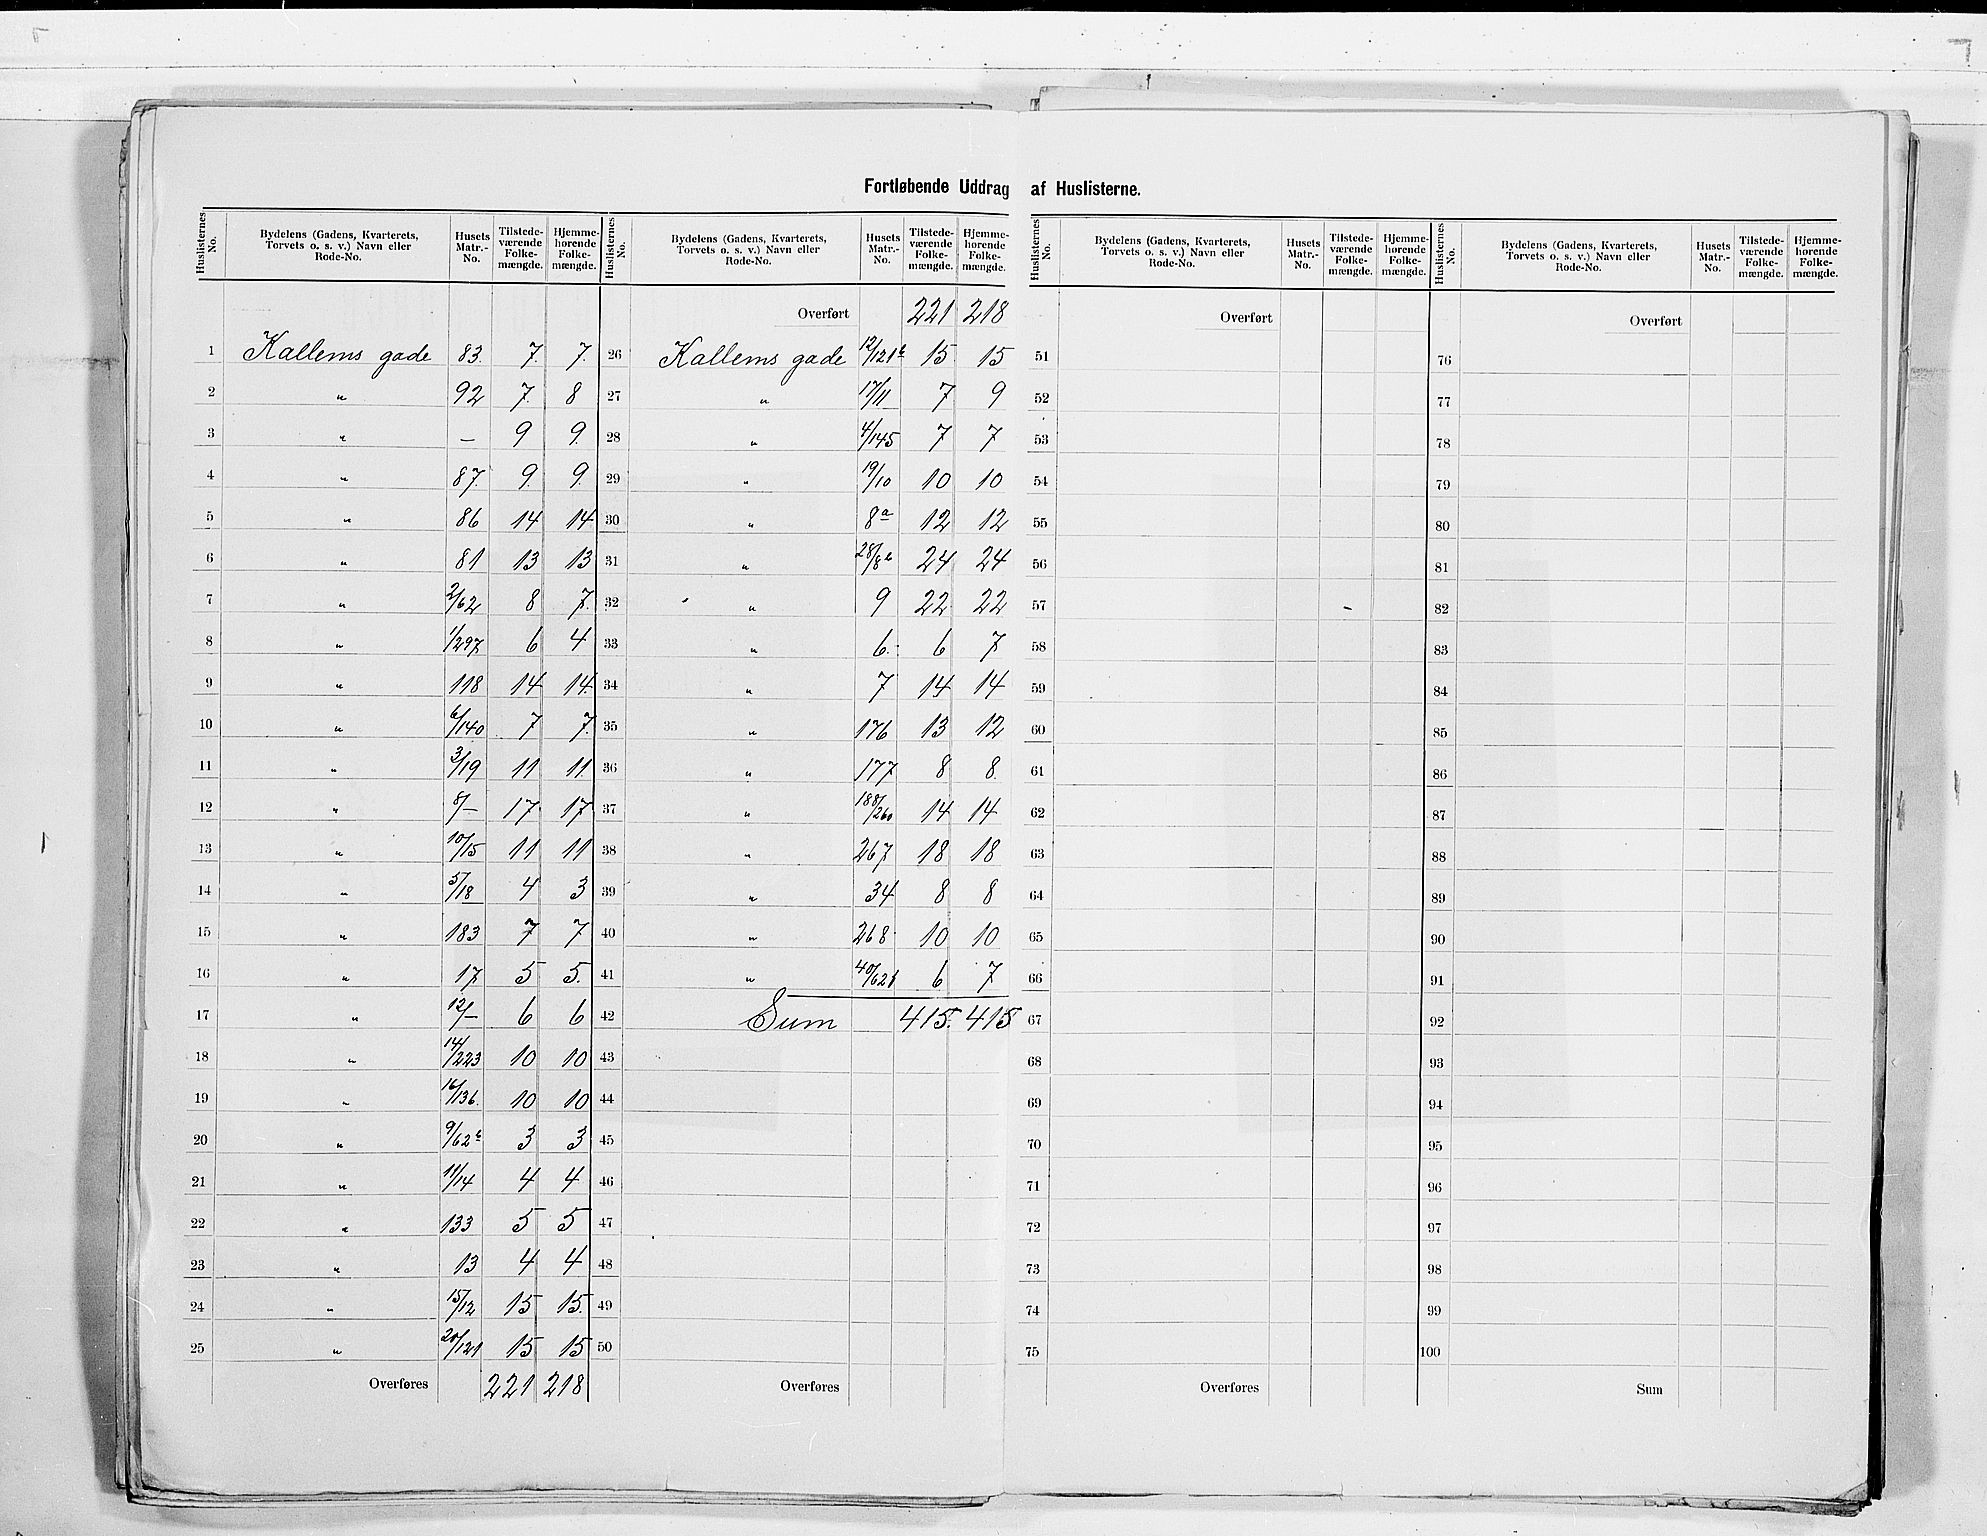 Fortløbende Uddrag af Huslisterne.
Huslisternes No. | Bydelens (Gadens, Kvarterets, Torvets o. s. v.) Navn eller Rode-No. | Husets Matr.-No. | Tilstede-værende Folke-mængde. | Hjemme-hørende Folke-mængde.
1 Kallems gade 83. 7. 7.
2 " 92 7. 8
3 " — 9 9.
4 " 87. 9. 9.
5 " 86 14 14
6 " 81 13 13
7 " 2/62 8 7.
8 " 1/297 6 4
9 " 118 14 14.
10 " 6/140 7 7.
11 " 3/19 11 11.
12 " 8/— 17. 17.
13 " 10/15 11 11
14 " 5/18 4 3
15 " 183 7 7
16 " 17. 5 5.
17 " 12/— 6 6
18 " 14/223 10 10
19 " 16/136. 10 10
20 " 9/62b 3 3
21 " 11/14 4 4
22 " 133 5 5
23 " 13 4 4
24 " 15/12 15 15.
25 " 20/121 15 15
Overføres 221 218
Huslisternes No. | Bydelens (Gadens, Kvarterets, Torvets o. s. v.) Navn eller Rode-No. | Husets Matr.-No. | Tilstede-værende Folke-mængde. | Hjemme-hørende Folke-mængde.
Overført 221 218
26 Kallems gade 12/121b 15 15
27 " 17/11 7 9
28 " 4/145 7 7
29 " 19/10 10 10
30 " 8a 12 12
31 " 28/8b 24 24
32 " 9 22 22
33 " 6. 6 7
34 " 7 14 14
35 " 176 13 12
36 " 177 8 8.
37 " 188/260 14 14
38 " 267 18 18
39 " 34 8 8
40 " 268 10 10
41 " 40/621 6 7
42 Sum 415. 415
43
44
45
46
47
48
49
50
Overføres
Huslisternes No. | Bydelens (Gadens, Kvarterets, Torvets o. s. v.) Navn eller Rode-No. | Husets Matr.-No. | Tilstede-værende Folke-mængde. | Hjemme-hørende Folke-mængde.
Overført
51
52
53
54
55
56
57
58
59
60
61
62
63
64
65
66
67
68
69
70
71
72
73
74
75
Overføres
Huslisternes No. | Bydelens (Gadens, Kvarterets, Torvets o. s. v.) Navn eller Rode-No. | Husets Matr.-No. | Tilstede-værende Folke-mængde. | Hjemme-hørende Folke-mængde.
Overført
76
77
78
79
80
81
82
83
84
85
86
87
88
89
90
91
92
93
94
95
96
97
98
99
100
Sum